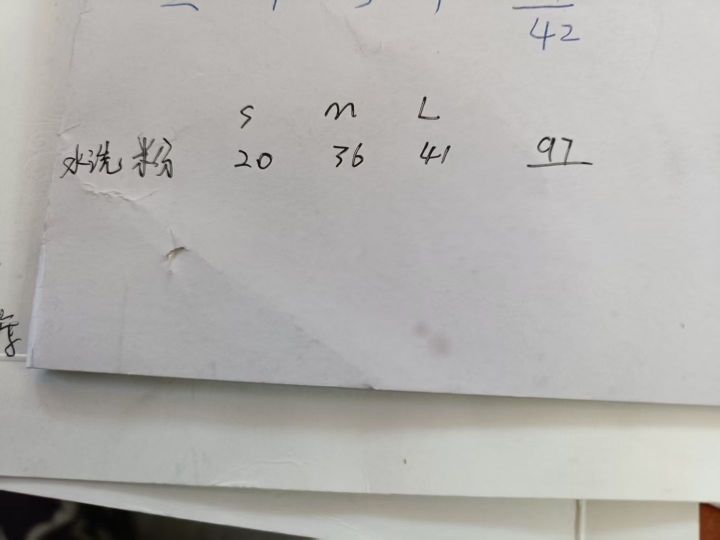 42
S M L
水洗粉 20 36 41 97